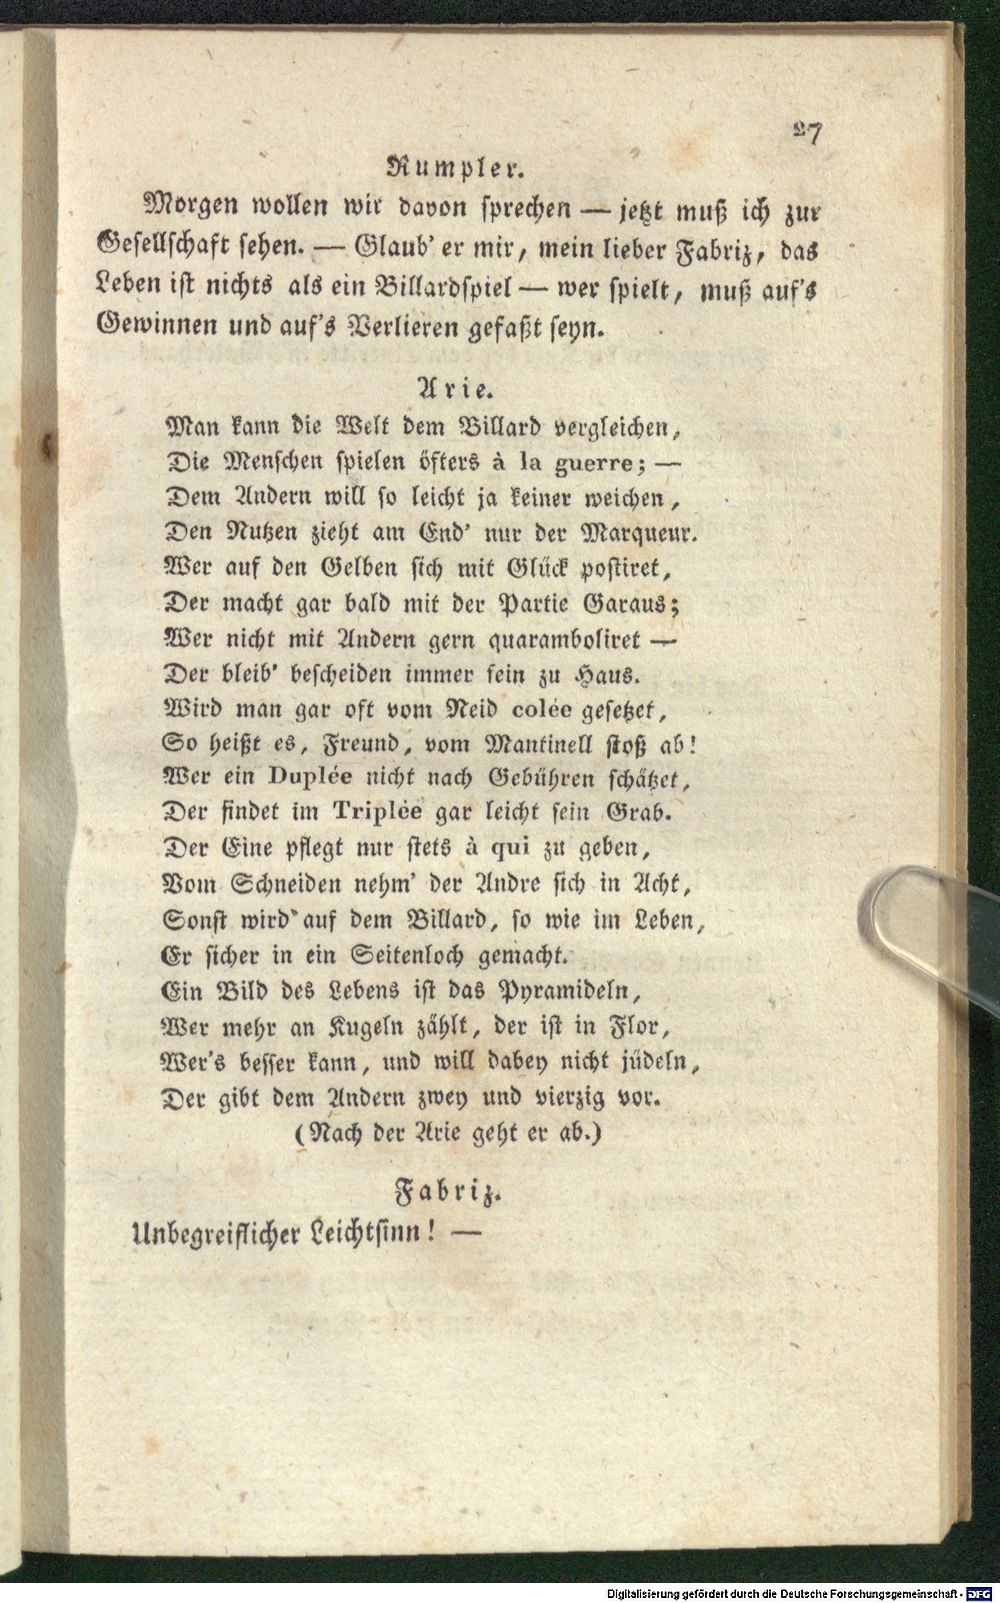 27
Rumpler.
Morgen wollen wir davon sprechen — jetzt muß ich zur
Gesellschaft sehen. — Glaub' er mir, mein lieber Fabriz, das
Leben ist nichts als ein Billardspiel — wer spielt, muß auf's
Gewinnen und auf's Verlieren gefaßt seyn.
Arie.
Man kann die Welt dem Billard vergleichen,
Die Menschen spielen öfters à la guerre; —
Dem Andern will so leicht ja keiner weichen,
Den Nutzen zieht am End' nur der Marqueur.
Wer auf den Gelben sich mit Glück postiret,
Der macht gar bald mit der Partie Garaus;
Wer nicht mit Andern gern quaramboliret —
Der bleib' bescheiden immer fein zu Haus.
Wird man gar oft vom Neid colée gesetzet,
So heißt es, Freund, vom Mantinell stoß ab!
Wer ein Duplée nicht nach Gebühren schätzet,
Der findet im Triplée gar leicht sein Grab.
Der Eine pflegt nur stets à qui zu geben,
Vom Schneiden nehm' der Andre sich in Acht,
Sonst wird auf dem Billard, so wie im Leben,
Er sicher in ein Seitenloch gemacht.
Ein Bild des Lebens ist das Pyramideln,
Wer mehr an Kugeln zählt, der ist in Flor,
Wer's besser kann, und will dabey nicht jüdeln,
Der gibt dem Andern zwey und vierzig vor.
(Nach der Arie geht er ab.)
Fabriz.
Unbegreiflicher Leichtsinn! —
Digitalisierung gefördert durch die Deutsche Forschungsgemeinschaft - DFG